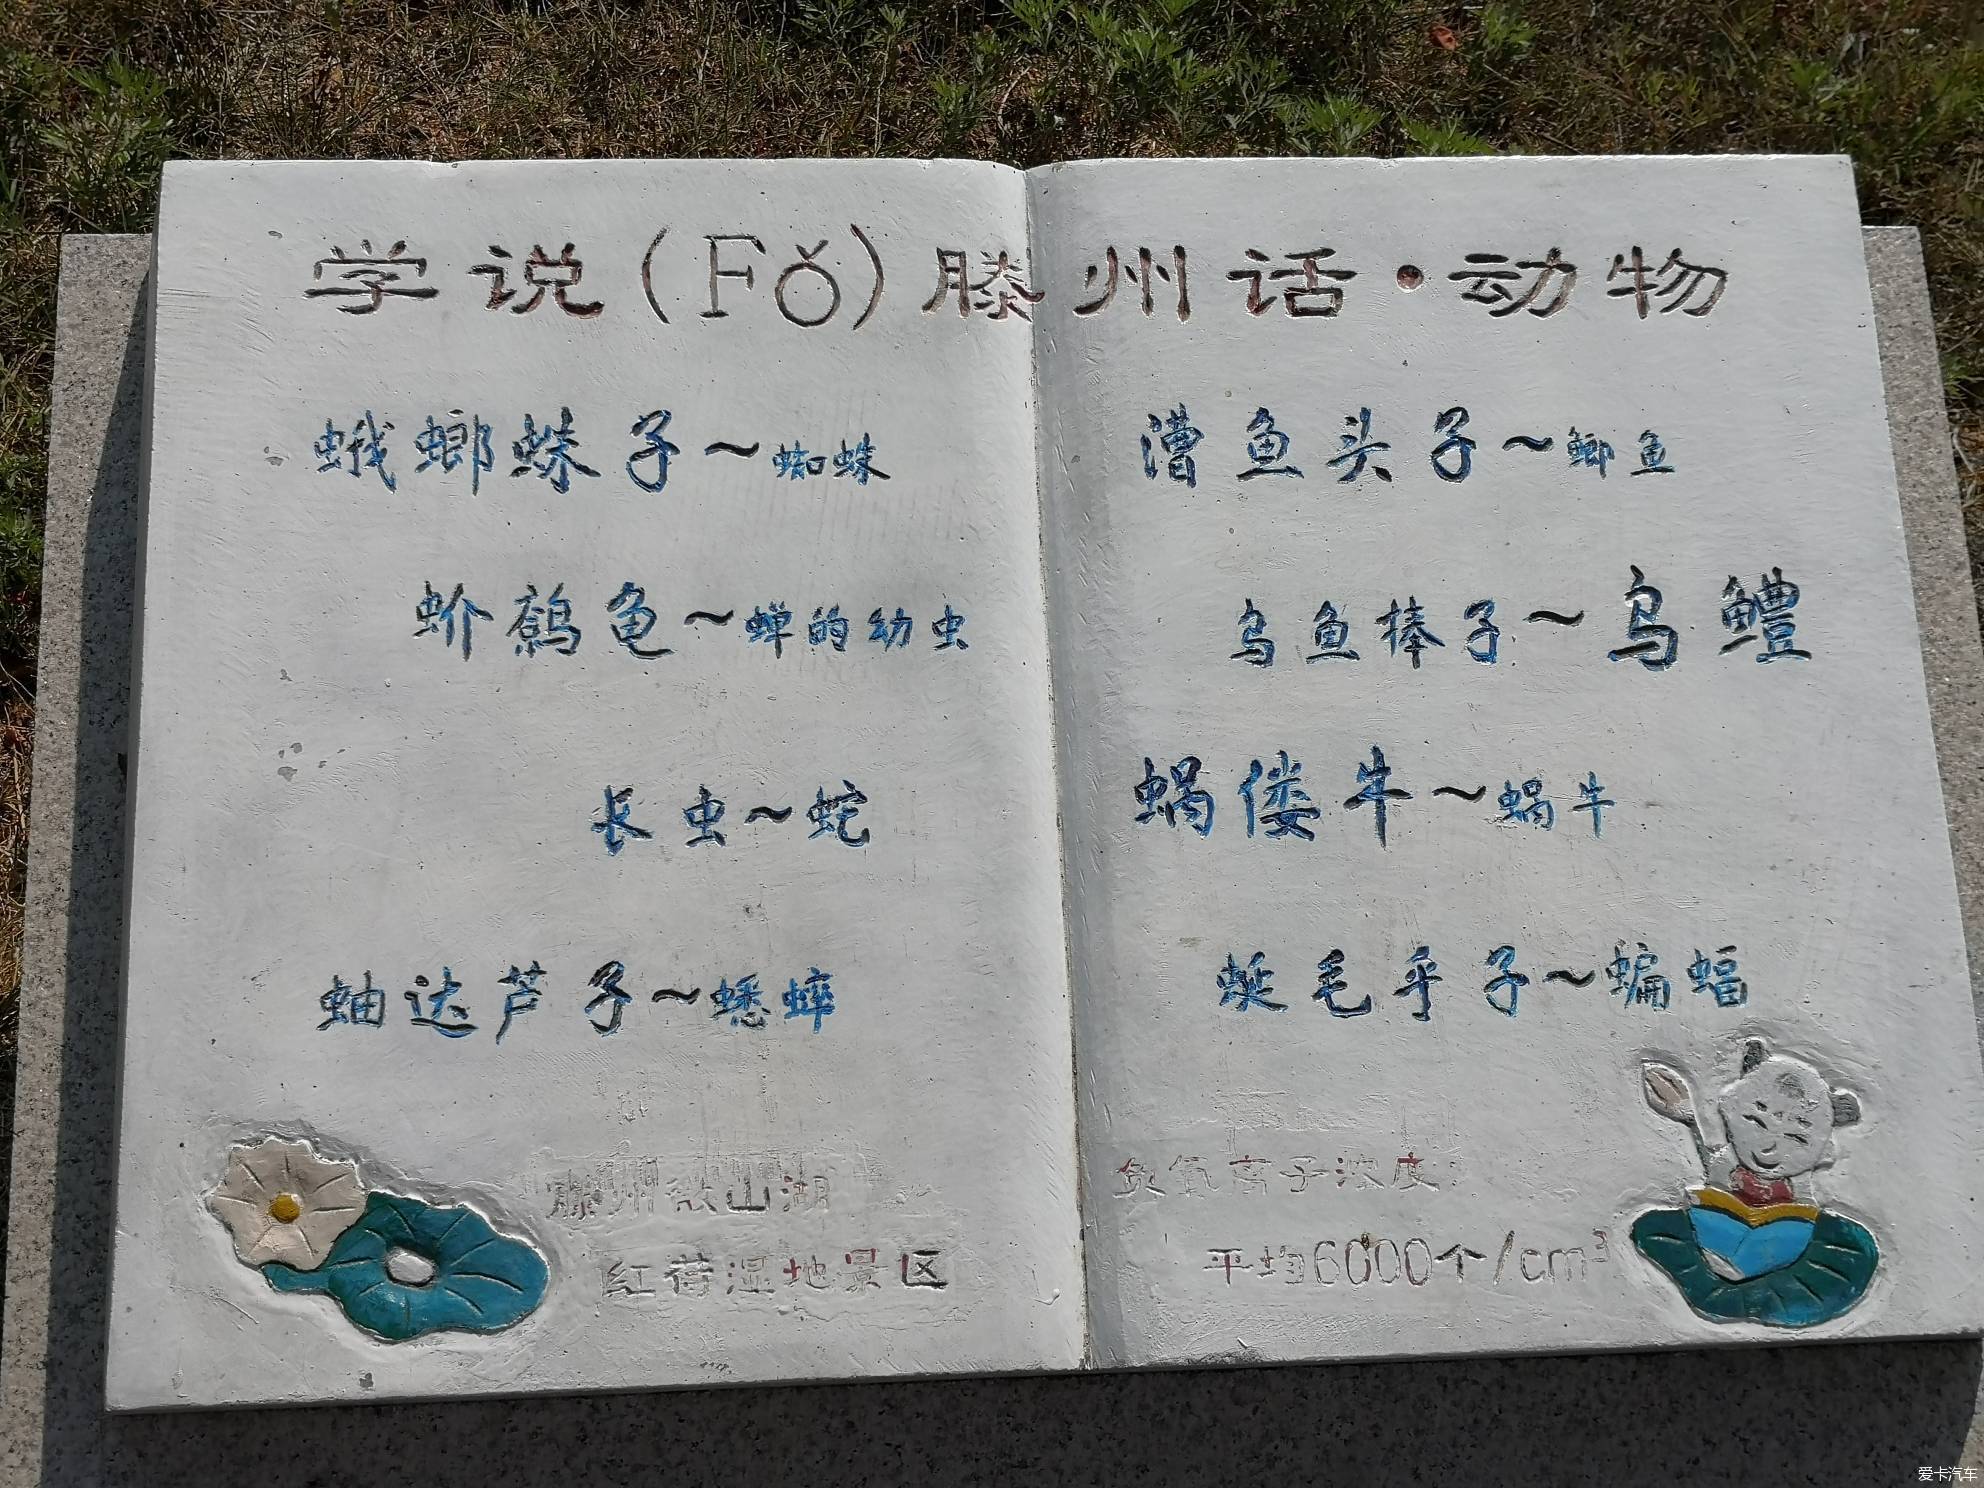 学说(Fǒ)滕州话·动物
蛾螂蛛子~蜘蛛
蚧鹪龟~蝉的幼虫
长虫~蛇
蚰达芦子~蟋蟀
滕州微山湖
红荷湿地景区
漕鱼头子~鲫鱼
乌鱼棒子~乌鳢
蜗偻牛~蜗牛
蜓毛乎子~蝙蝠
负氧离子浓度:
平均6000个/cm³
爱卡汽车